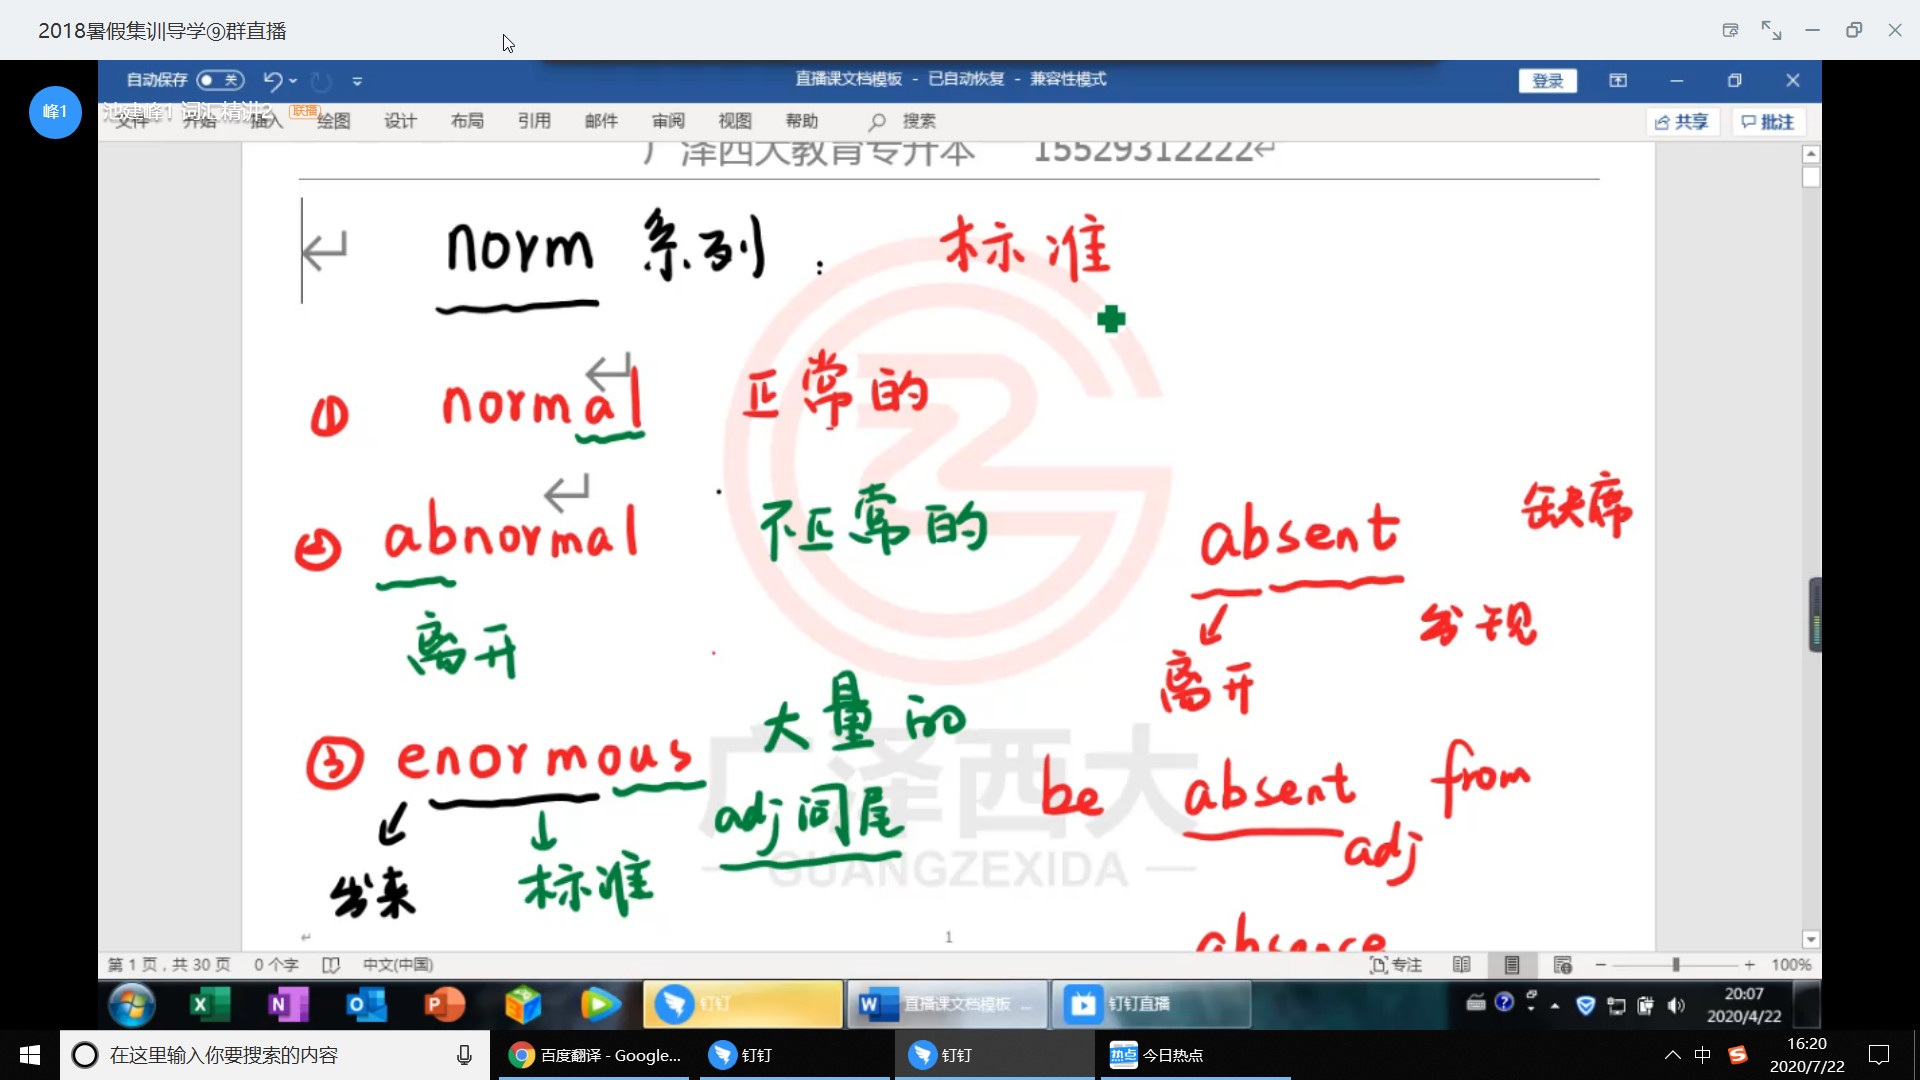 2018暑假集训导学⑨群直播
自动保存 关
直播课文档模板 - 已自动恢复 - 兼容性模式
登录
峰1
池建峰1 词汇精讲2 联播
文件 开始 插入 绘图 设计 布局 引用 邮件 审阅 视图 帮助 搜索
共享 批注
广泽西大教育专升本 15529312222
norm 系列 : 标准
① normal 正常的
② abnormal 不正常的
离开
absent 缺席
离开 出现
③ enormous 大量的
adj 词尾
出来 标准
be absent from
adj
absence
广泽西大
GUANGZEXIDA
1
第 1 页，共 30 页 0 个字 中文(中国)
专注 100%
钉钉
直播课文档模板 ...
钉钉直播
20:07
2020/4/22
在这里输入你要搜索的内容
百度翻译 - Google...
钉钉
钉钉
热点 今日热点
中
16:20
2020/7/22